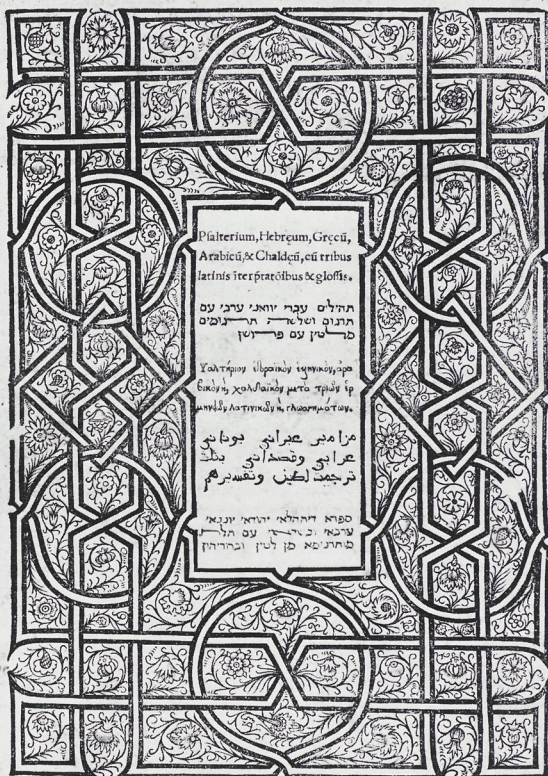 Psalterium, Hebręum, Gręcū,
Arabicū, & Chaldęū, cū tribus
latinis īterp̄tatōibus & glossis.
תהילים עברי יוואני ערבי עם
תרגום ושלשה תרגומים
מלטין עם פרושן
Ψαλτήριον ἑβραϊκὸν ἑλληνικὸν, ἀρα
βικόν ἢ, χαλδαϊκὸν μετα τριῶν ἑρ
μηνιῶν λατινικῶν ἢ, γλωσσημάτων.
مزامير عبراني يوناني
عرابي وقصداني بثلث
ترجمت لطين وتفسيرهم
ספרא דיתהלאי יהודאי יוונאי
ערבאי עם תלת
מן לטין